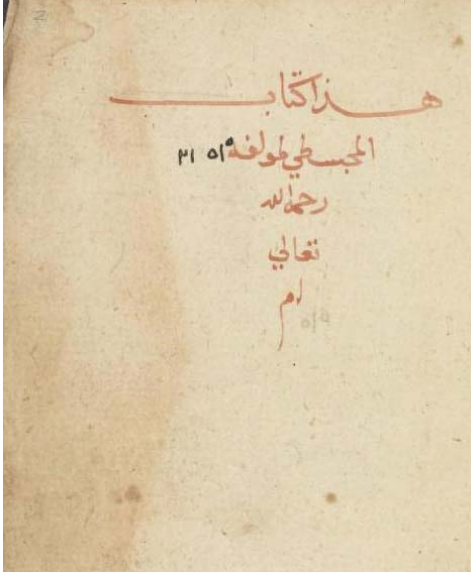 هذا كتاب
المجسطي لمولفه
رحمه الله
تعالي
ام